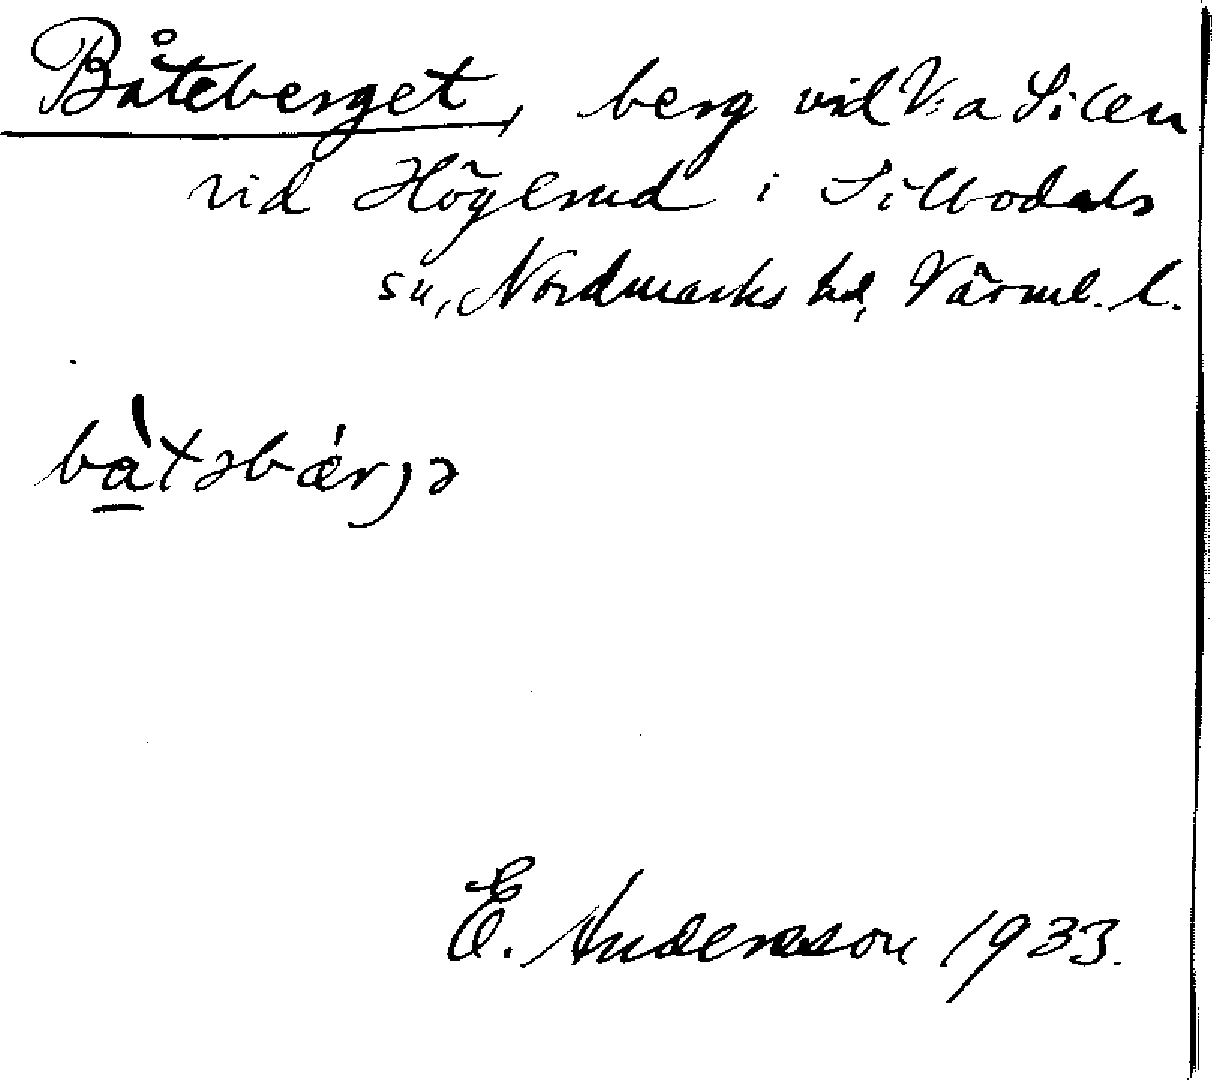 Båteberget, berg vid V:a Silen
vid Högerud i Silbodals
sn, Nordmarks hd, Värml. l.
bàtəbǽrjə
E. Andersson 1933.